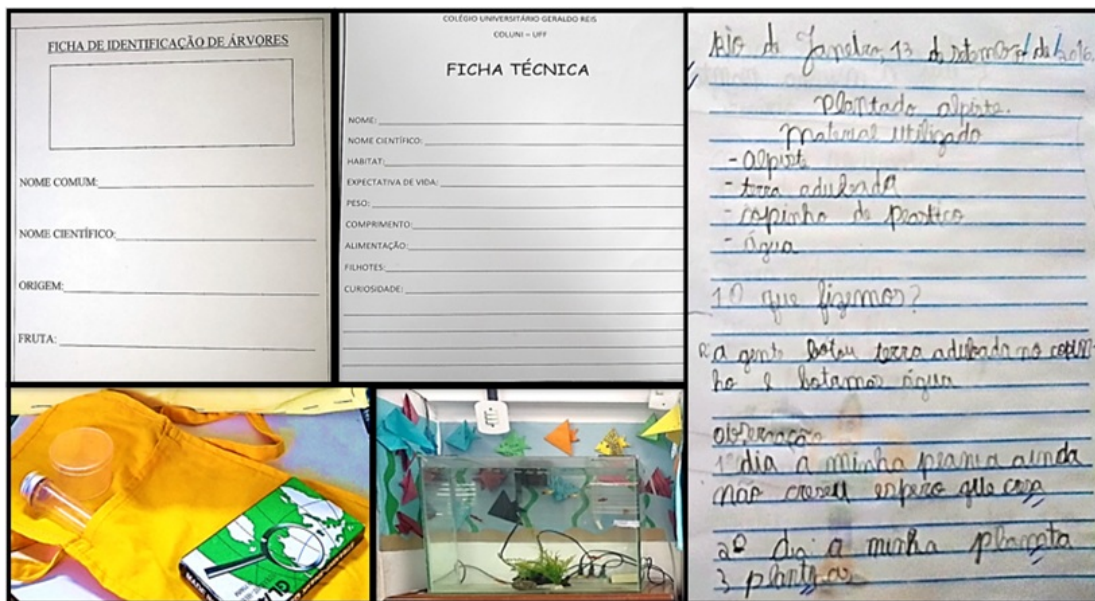 FICHA DE IDENTIFICAÇÃO DE ÁRVORES
NOME COMUM:
NOME CIENTÍFICO:
ORIGEM:
FRUTA:
COLÉGIO UNIVERSITÁRIO GERALDO REIS
COLUNI – UFF
FICHA TÉCNICA
NOME:
NOME CIENTÍFICO:
HABITAT:
EXPECTATIVA DE VIDA:
PESO:
COMPRIMENTO:
ALIMENTAÇÃO:
FILHOTES:
CURIOSIDADE:
Rio de Janeiro, 13 de de 2016.
plantado alpiste.
material utilizado
- alpiste
- terra adubada
- copinho de
- água
1 O que fizemos?
R: a gente botou terra adubada no copin-
ho e botamos água
1º dia a minha ainda
não espero que
2º dia a minha
3